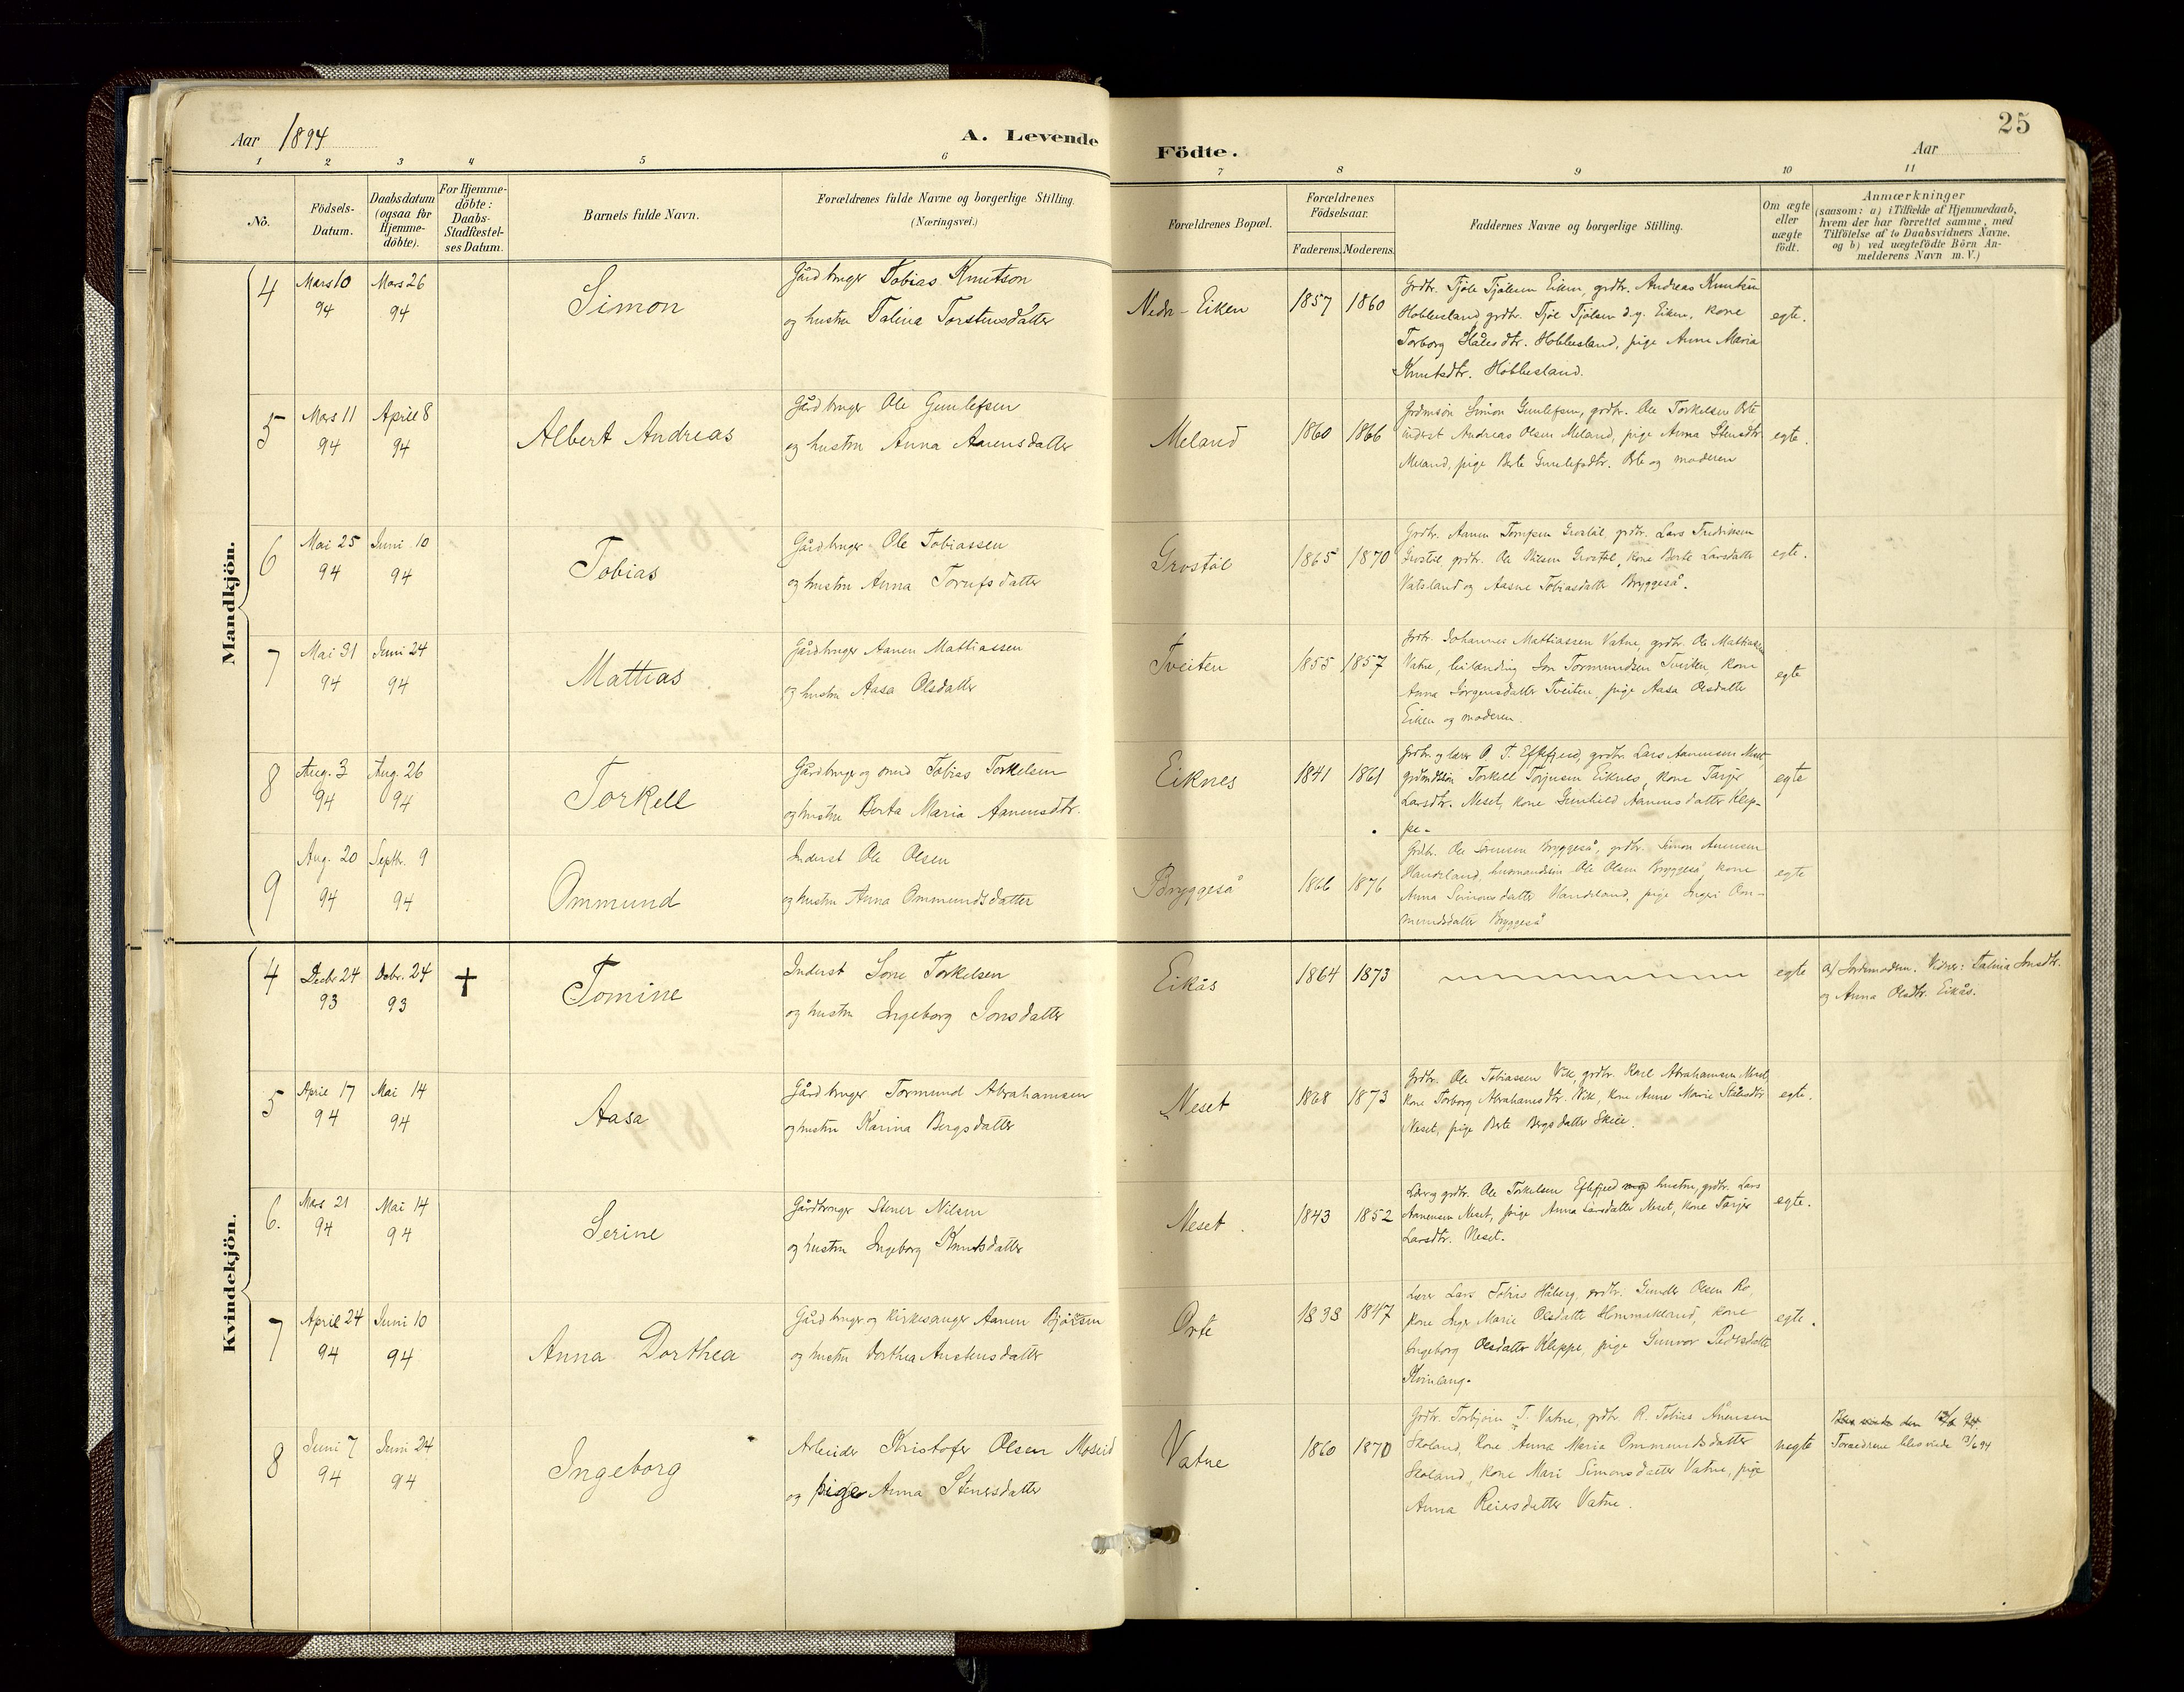 25
Aar 1894
A. Levende Födte.
Aar
1 2 3 4 5 6 7 8 9 10 11
No.
Födsels-Datum.
Daabsdatum (ogsaa for Hjemme-döbte).
For Hjemme-döbte: Daabs-Stadfæstel-ses Datum.
Barnets fulde Navn.
Forældrenes fulde Navne og borgerlige Stilling. (Næringsvei.)
Forældrenes Bopæl.
Forældrenes Födselsaar.
Faderens. Moderens.
Faddernes Navne og borgerlige Stilling.
Om ægte eller uægte födt.
Anmærkninger
(saasom: a) i Tilfælde af Hjemmedaab,
hvem der har forrettet samme, med
Tilföielse af to Daabsvidners Navne,
og b) ved uægtefödte Börn An-
melderens Navn m. V.)
Mandkjön.
4 Mars 10 94 Mars 26 94 Simon
Gårdbruger Tobias Knutson
og hustru Talina Torstensdatter
Nedr-Eiken 1857 1860
Grdbr. Tjöle Tjölsen Eiken, grdbr. Andreas Knutsen
Hobbesland grdbr. Tjöl Tjölsen d.y. Eiken, kone
Torborg Ståles dtr. Hobbesland, pige Anne Maria
Knutsdtr. Hobbesland.
egte.
5 Mars 11 94 April 8 94 Albert Andreas
Gårdbruger Ole Gunlefsen
og hustru Anna Aanensdatter
Meland 1860 1866
Simon Gunlefsen, grdbr. Ole Torkelsen Orte
inderst Andreas Olsen Meland, pige Anna Stensdtr.
Meland, pige Berte Gunlefsdtr. Orte og moderen
egte.
6 Mai 25 94 Juni 10 94 Tobias
Gårdbruger Ole Tobiassen
og hustru Anna Torufsdatter
Grostöl 1865 1870
Grdbr. Aanen Grostöl, grdbr. Lars Fredriksen
Grostöl, grdbr. Ole Grostöl, kone Berte Larsdatter
Vatsland og Aasne Tobiasdatter Bryggeså.
egte.
7 Mai 31 94 Juni 24 94 Mattias
Gårdbruger Aanen Mattiassen
og hustru Aasa Olsdatter
Tveiten 1855 1857
Grdbr. Johannes Mattiassen Vatne, grdbr. Ole Mattiassen
Vatne, Tormundsen Tveiten kone
Anna Jörgensdatter Tveiten, pige Aasa Olsdatter
Eiken og moderen.
egte
8 Aug. 3 94 Aug. 26 94 Torkell
Gårdbruger og smed Tobias Torkelsen
og hustru Berta Maria Aanensdtr.
Eiknes 1841 1861
Grdbr. og lærer O. T. Eftefjeld, grdbr. Lars Aanensen Neset,
Torkell Torjusen Eiknes, kone Tarjer
Larsdtr. Neset, kone Gunhild Aanensdatter Klep-
pe.
egte
9 Aug. 20 94 Septbr. 9 94 Ommund
Inderst Ole Olsen
og hustru Anna Ommundsdatter
Bryggeså 1866 1876
Grdbr. Ole Sörensen Bryggeså, grdbr. Simon Anensen
Handeland, husmandsön Ole Olsen Bryggeså, kone
Anna Simonsdatter Handeland, pige Ingeri Om-
mundsdatter Bryggeså
egte
Kvindekjön.
4 Decbr 24 93 Decbr. 24 93 † Tomine
Inderst Sone Torkelsen
og hustru Ingeborg Jonsdatter
Eikås 1864 1873
egte
a) Jordemoderen. Vidner: Talina
og Anna Olsdtr. Eikås.
5 April 17 94 Mai 14 94 Aasa
Gårdbruger Tormund Abrahamsen
og hustru Karina Bergsdatter
Neset 1868 1873
Grdbr. Ole Tobiassen Vik, grdbr. Karl Abrahamsen Neset,
kone Torborg Abrahamsdtr. Vik, kone Anne Marie Ståls­dtr
Neset, pige Berte Bergsdatter Skeie.
egte.
6. Mars 21 94 Mai 14 94 Serine
Gårdbruger Stener Nilsen
og hustru Ingeborg Knutsdatter
Neset. 1843 1852
Lærer og grdbr. Ole Torkelsen Eftefjeld hustru, grdbr. Lars
Aanensen Neset, pige Anna Larsdatter Neset, kone Tarjer
Larsdtr. Neset.
egte.
7 April 24 94 Juni 10 94 Anna Dorthea
Gårdbruger og kirkesanger Aanen Bjørnsen
og hustru Dorthea Austensdatter
Orte 1838 1847
Lærer Lars Tobias Håberg, grdbr. Gunder Olsen Ro,
kone Inger Marie Olsdatter kone
Ingeborg Olsdatter Kleppe, pige Gunvor Pedersdatter
Kvinlaug.
egte.
8 Juni 7 94 Juni 24 94 Ingeborg
Arbeider Kristofer Olsen Moseid
og pige Anna Stenersdatter
Vatne 1860 1870
Grdbr. Torbjörn T. Vatne, grdbr. R. Tobias Ånensen
Skoland, kone Anna Maria Ommundsdatter
Skoland, kone Mari Simonsdatter Vatne, pige
Anna Reiersdatter Vatne.
uegte
Foræeldrene blev viede 13/6 94